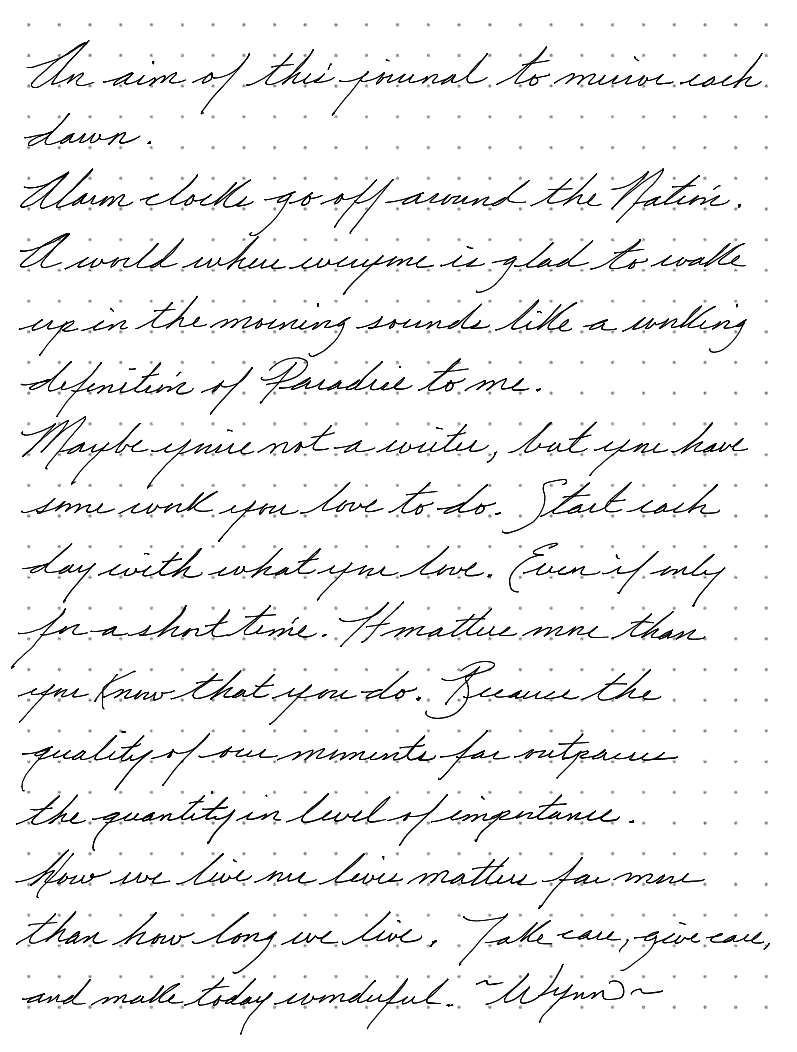 An aim of this journal to mirror each
dawn.
Alarm clocks go off around the Nation.
A world where everyone is glad to wake
up in the morning sounds like a working
definition of Paradise to me.
Maybe you're not a writer, but you have
some work you love to do. Start each
day with what you love. Even if only
for a short time. It matters more than
you know that you do. Because the
quality of our moments far outpaces
the quantity in level of importance.
How we live our lives matters far more
than how long we live. Take care, give care,
and make today wonderful. ~Wynn~